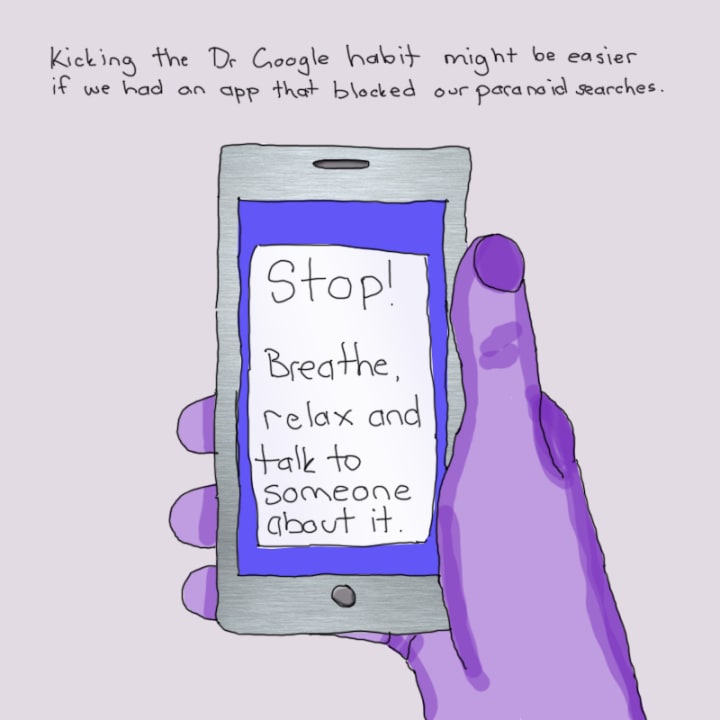 Kicking the Dr Google habit might be easier
if we had an app that blocked our paranoid searches.
Stop!
Breathe,
relax and
talk to
someone
about it.